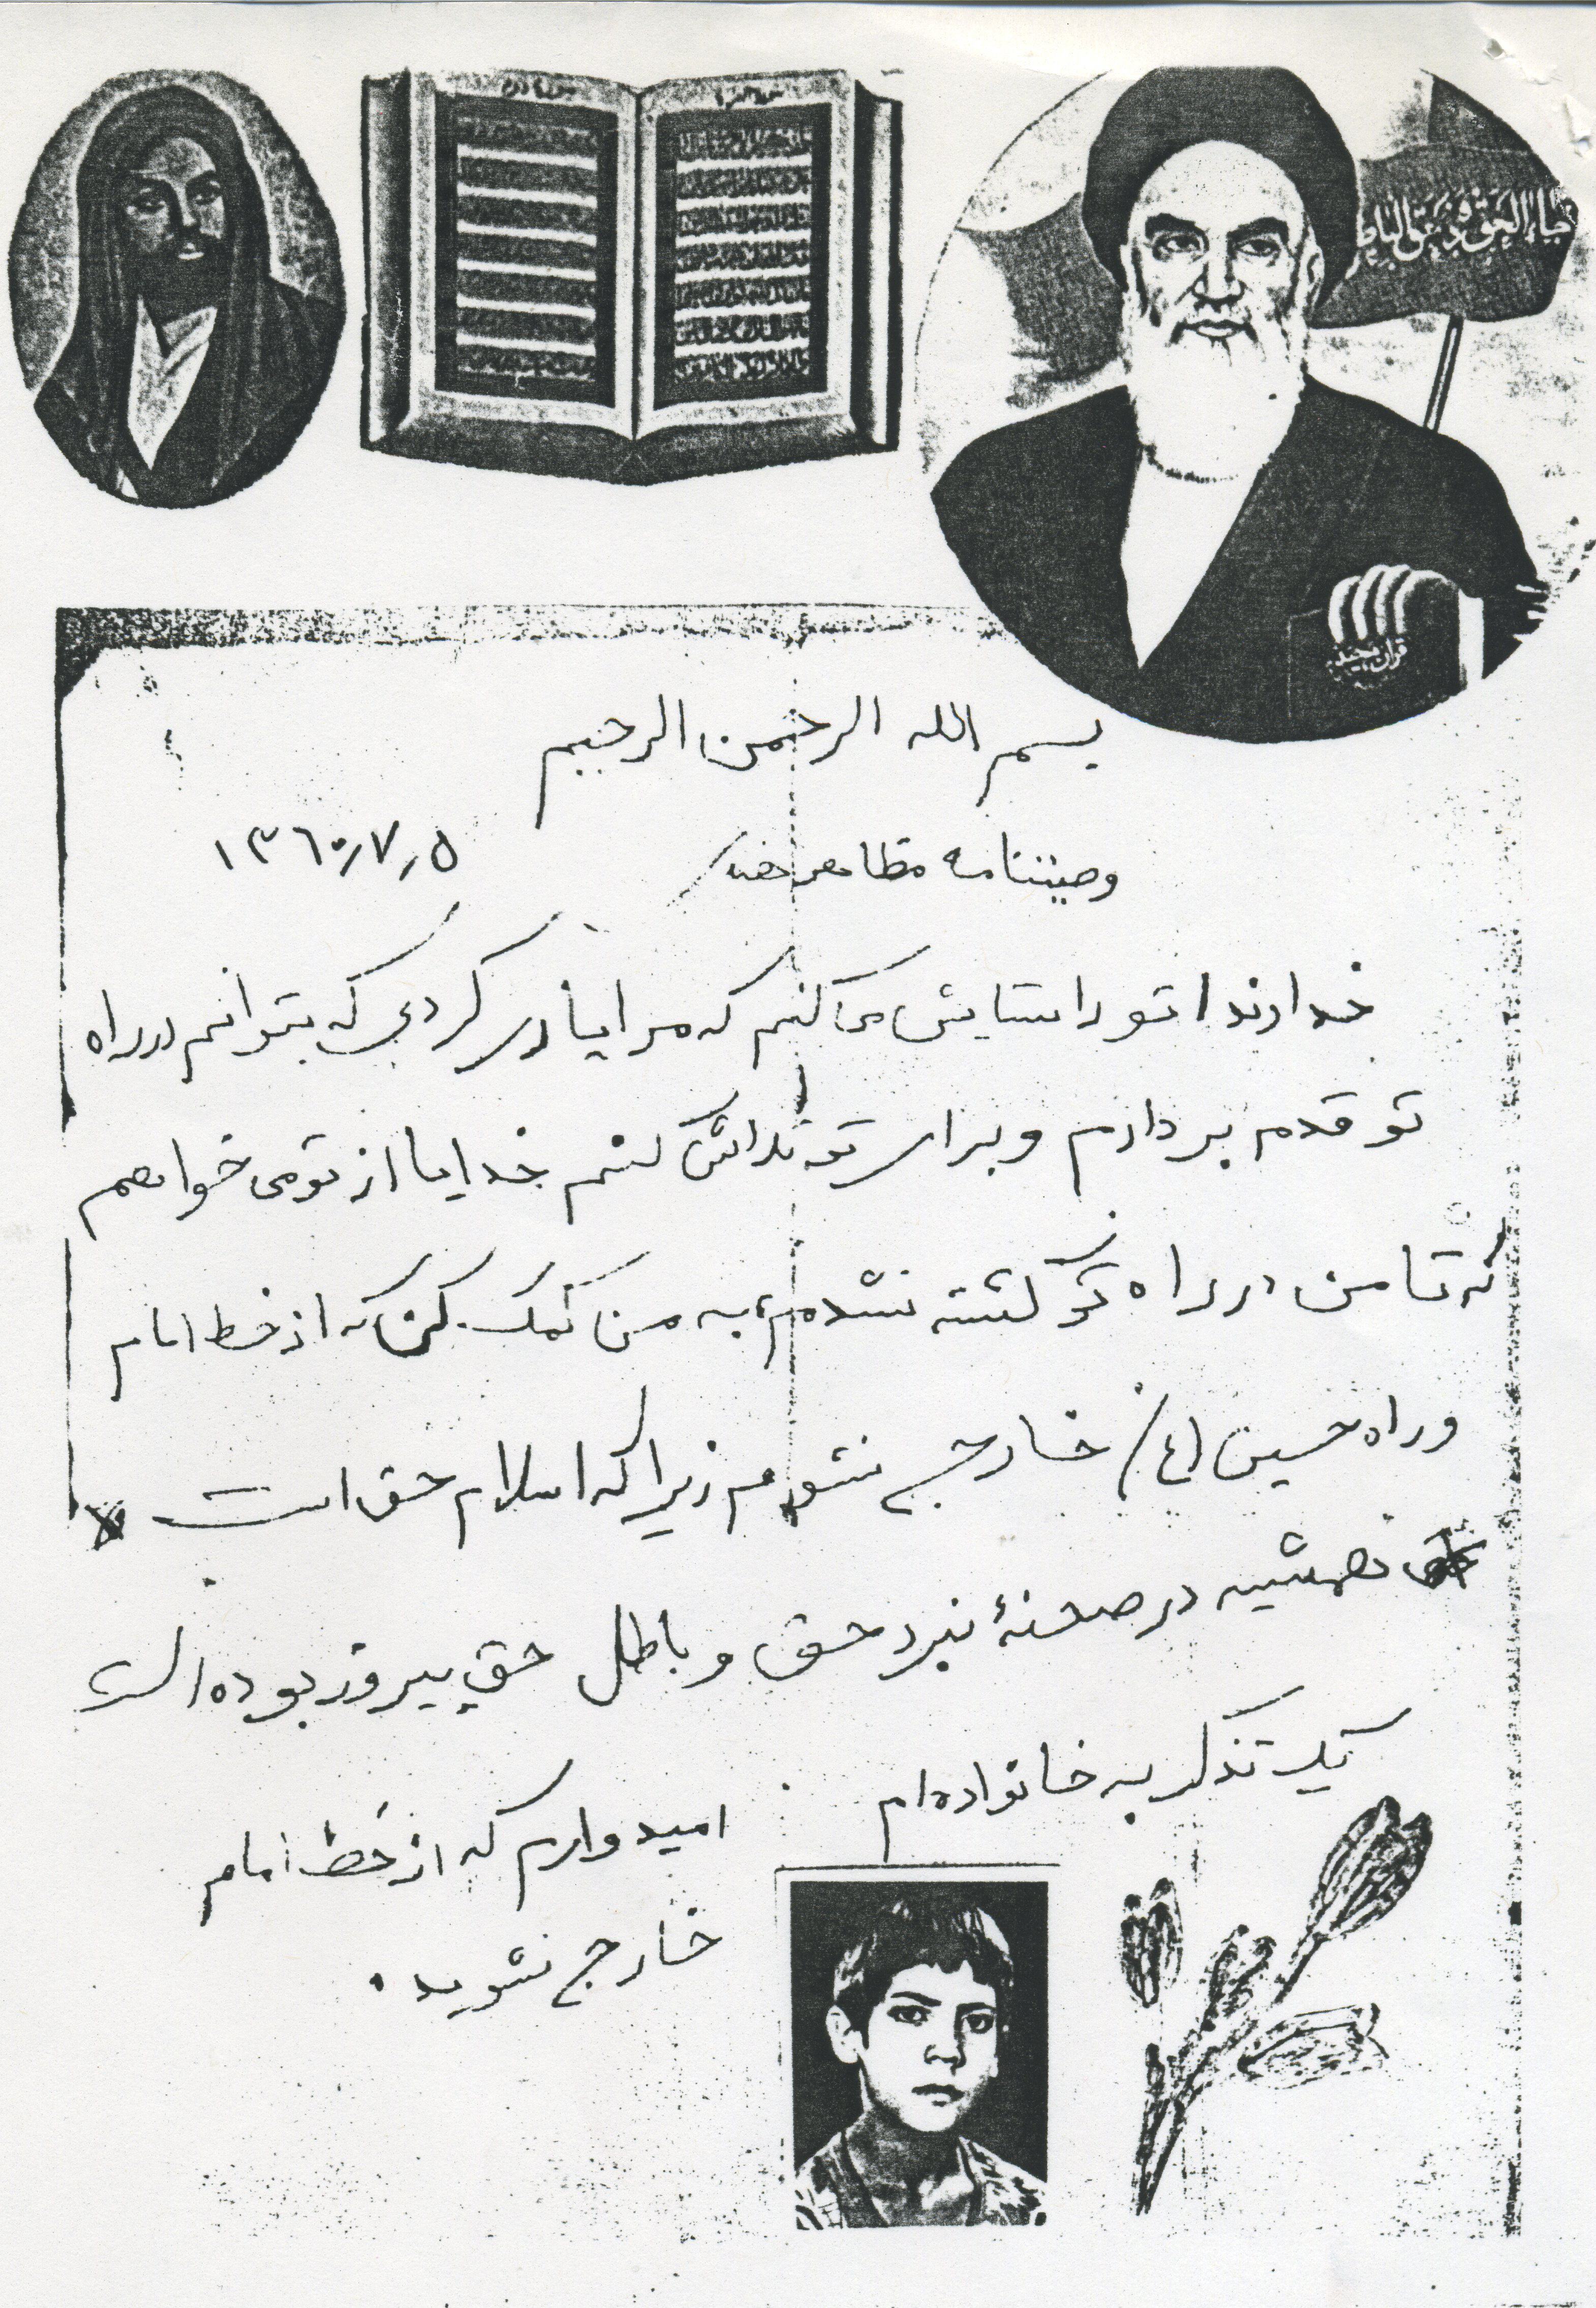 جاء الحق و زهق الباطل
قرآن مجید
بسم الله الرحمن الرحیم
وصیتنامه مظاهر
۱۳۶۰/۷/۵
خداوندا تو را ستایش می کنم که مرا یاری کردی که بتوانم در راه
تو قدم بردارم و برای تو تلاش کنم خدایا از تو می خواهم
که تا من در راه تو کشته نشدم به من کمک کن که از خط امام
و راه حسین (ع) خارج نشوم زیرا که اسلام حق است
همیشه در صحنهٔ نبرد حق و باطل حق پیروز بوده است
یک تذکر به خانواده ام
امیدوارم که از خط امام
خارج نشوید.